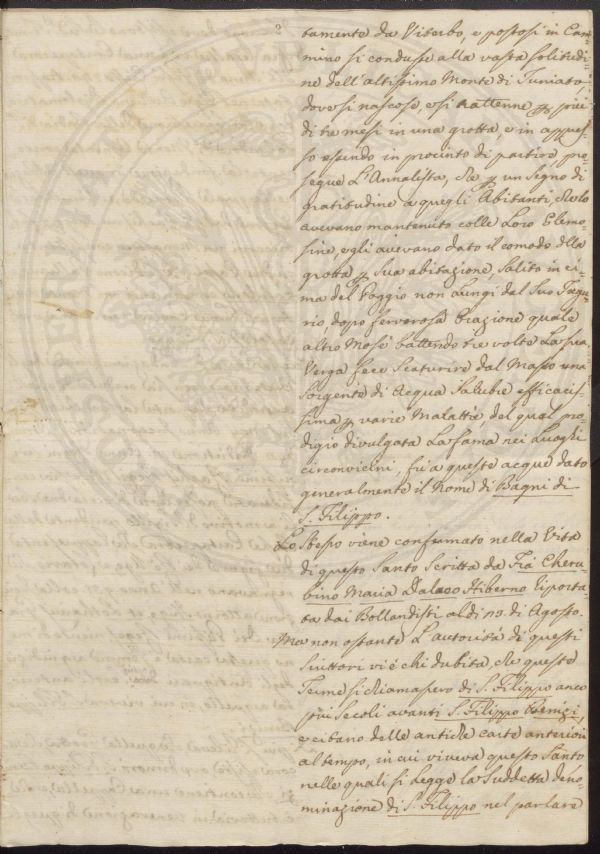 tamente da Viterbo, e postosi in Cam-
mino si condusse alla vasta solitudi-
ne dell'altissimo Monte di Tuniato,
dove si nascose, e si trattenne p più
di tre mesi in una grotta, e in appres-
so essendo in procinto di partire pro-
segue L'Annalista, che p un segno di
gratitudine a quegli Abitanti, che lo
avevano mantenuto colle Loro Elemo-
sine, egli avevano dato il comodo della
grotta p sua abitazione, Salito in ci-
ma del Poggio non Lungi dal Suo Tugu-
rio, dopo fervorosa Orazione quale
altro Mosè battendo tre volte La sua
Verga fece Scaturire dal Masso una
Sorgente di Acqua Salubre efficacis-
sima p varie Malattie, del qual pro-
digio divulgata La fama nei Luoghi
circonvicini, fù a queste acque dato
generalmente il Nome di Bagni di
S. Filippo.
Lo Stesso viene confermato nella Vita
di questo Santo Scritta da Frà Cheru-
bino Maria Dalaeo Hiberno riporta-
ta dai Bollandisti al dì 23. di Agosto.
Ma non ostante L'autorità di questi
Scrittori vi è chi dubita, che queste
Terme si chiamassero di S. Filippo anco
più Secoli avanti S. Filippo Benizi,
e citano delle antiche carte anteriori
al tempo, in cui viveva questo Santo
nelle quali si Legge la Suddetta deno-
minazione di S. Filippo nel parlare